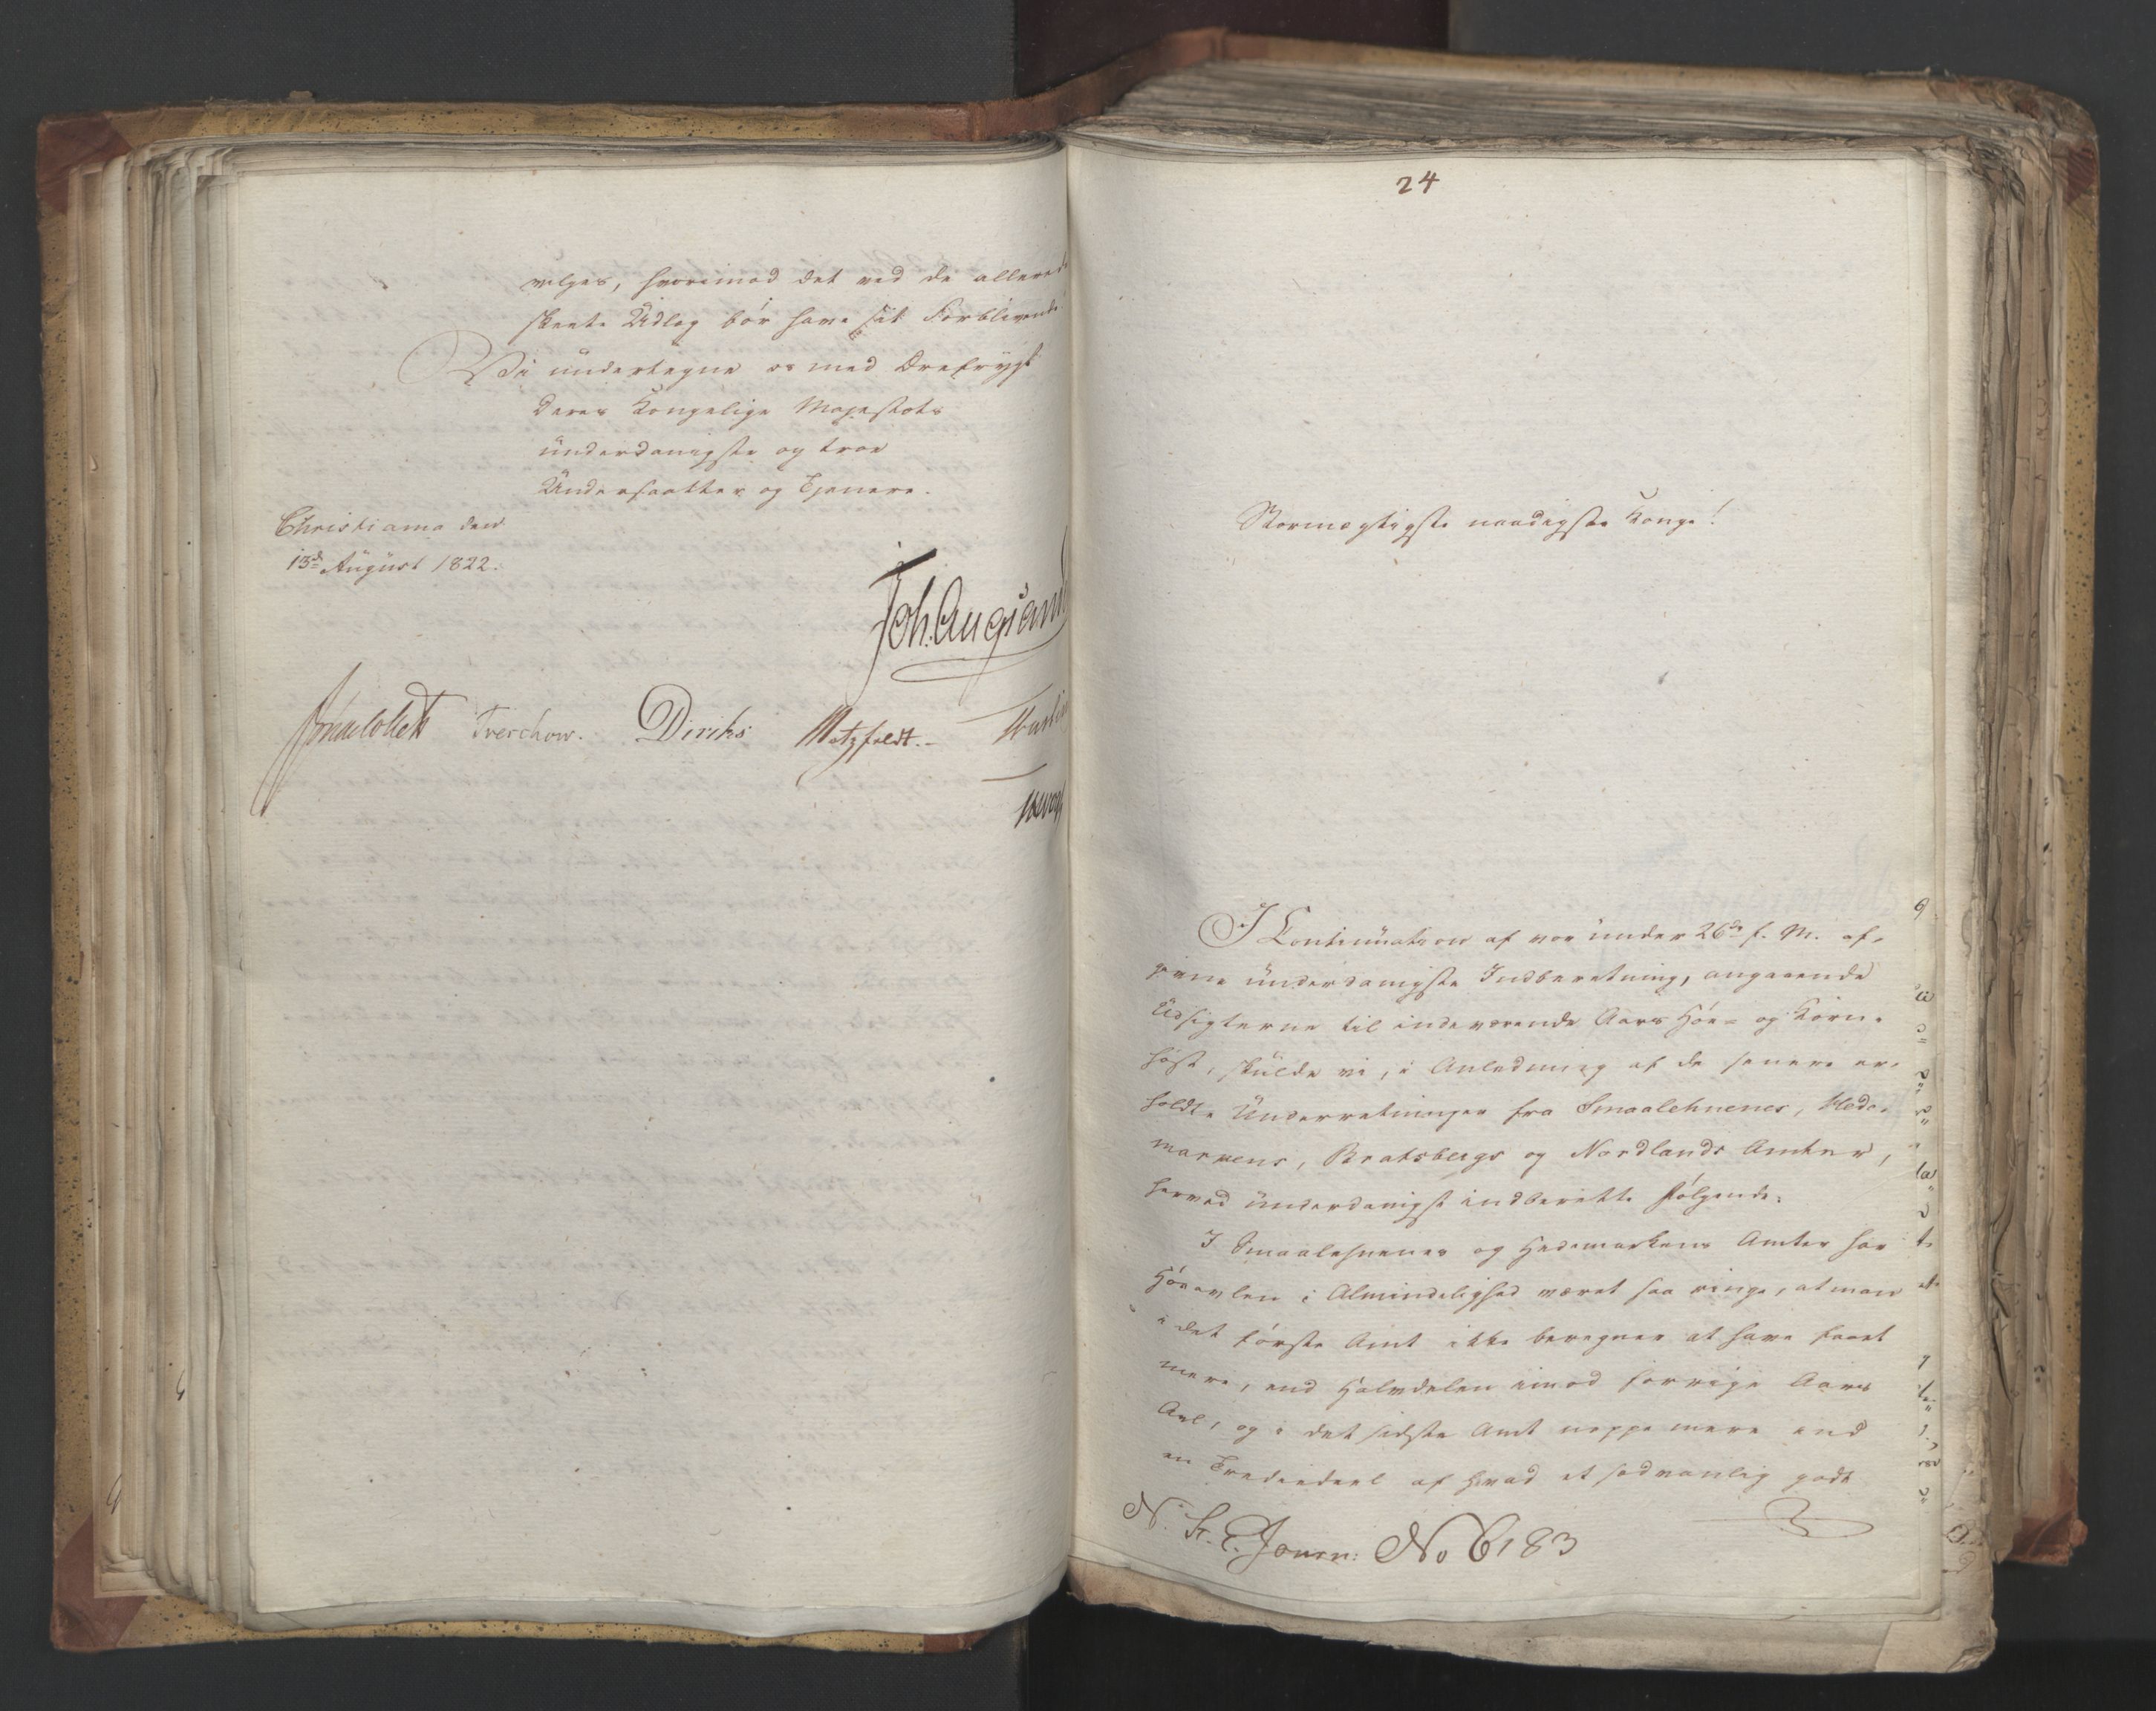 velges, hvorimod det ved de allerede
skeete Udlæg bør have sit Forblivende
Vi undertegne os med Ærefrygt
Deres Kongelige Majestæts
underdanigste og troe
Undersaatter og Tjenere.
Christiania den
13de August 1822.
Joh. Aug: Sand
Jonas Collett Treschow. Diriks Motzfeldt.
24
Stormægtigste naadigste Konge!
I Continuation af vor under 26de f. M. af-
givne underdanigste Indberetning, angaaende
Udsigterne til indeværende Aars Høe- og Korn-
høst, skulde vi, i Anledning af de senere er-
holdte Underretninger fra Smaalehnenes, Hede-
markens, Bratsbergs og Nordlands Amter,
herved underdanigst indberette følgende.
I Smaalehnenes og Hedemarkens Amter har
Høeavlen i Almindelighed været saa ringe, at man
i det første Amt ikke beregner at have faaet
mere, end Halvdelen imod forrige Aars
Avl, og i det sidste Amt neppe mere end
en Trediedeel af hvad et sædvanlig godt
N. St. E. Journ: No 6183